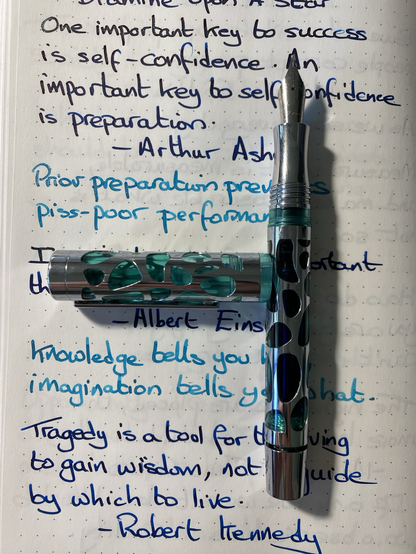 One important key to success
is self-confidence. An
important key to self confidence
is preparation.
— Arthur Ash
Prior preparation prev s
piss-poor performan
I ortant
th
— Albert Eins
Knowledge tells you h
imagination tells yo what.
Tragedy is a tool for th ving
to gain wisdom, not guide
by which to live.
— Robert Kennedy